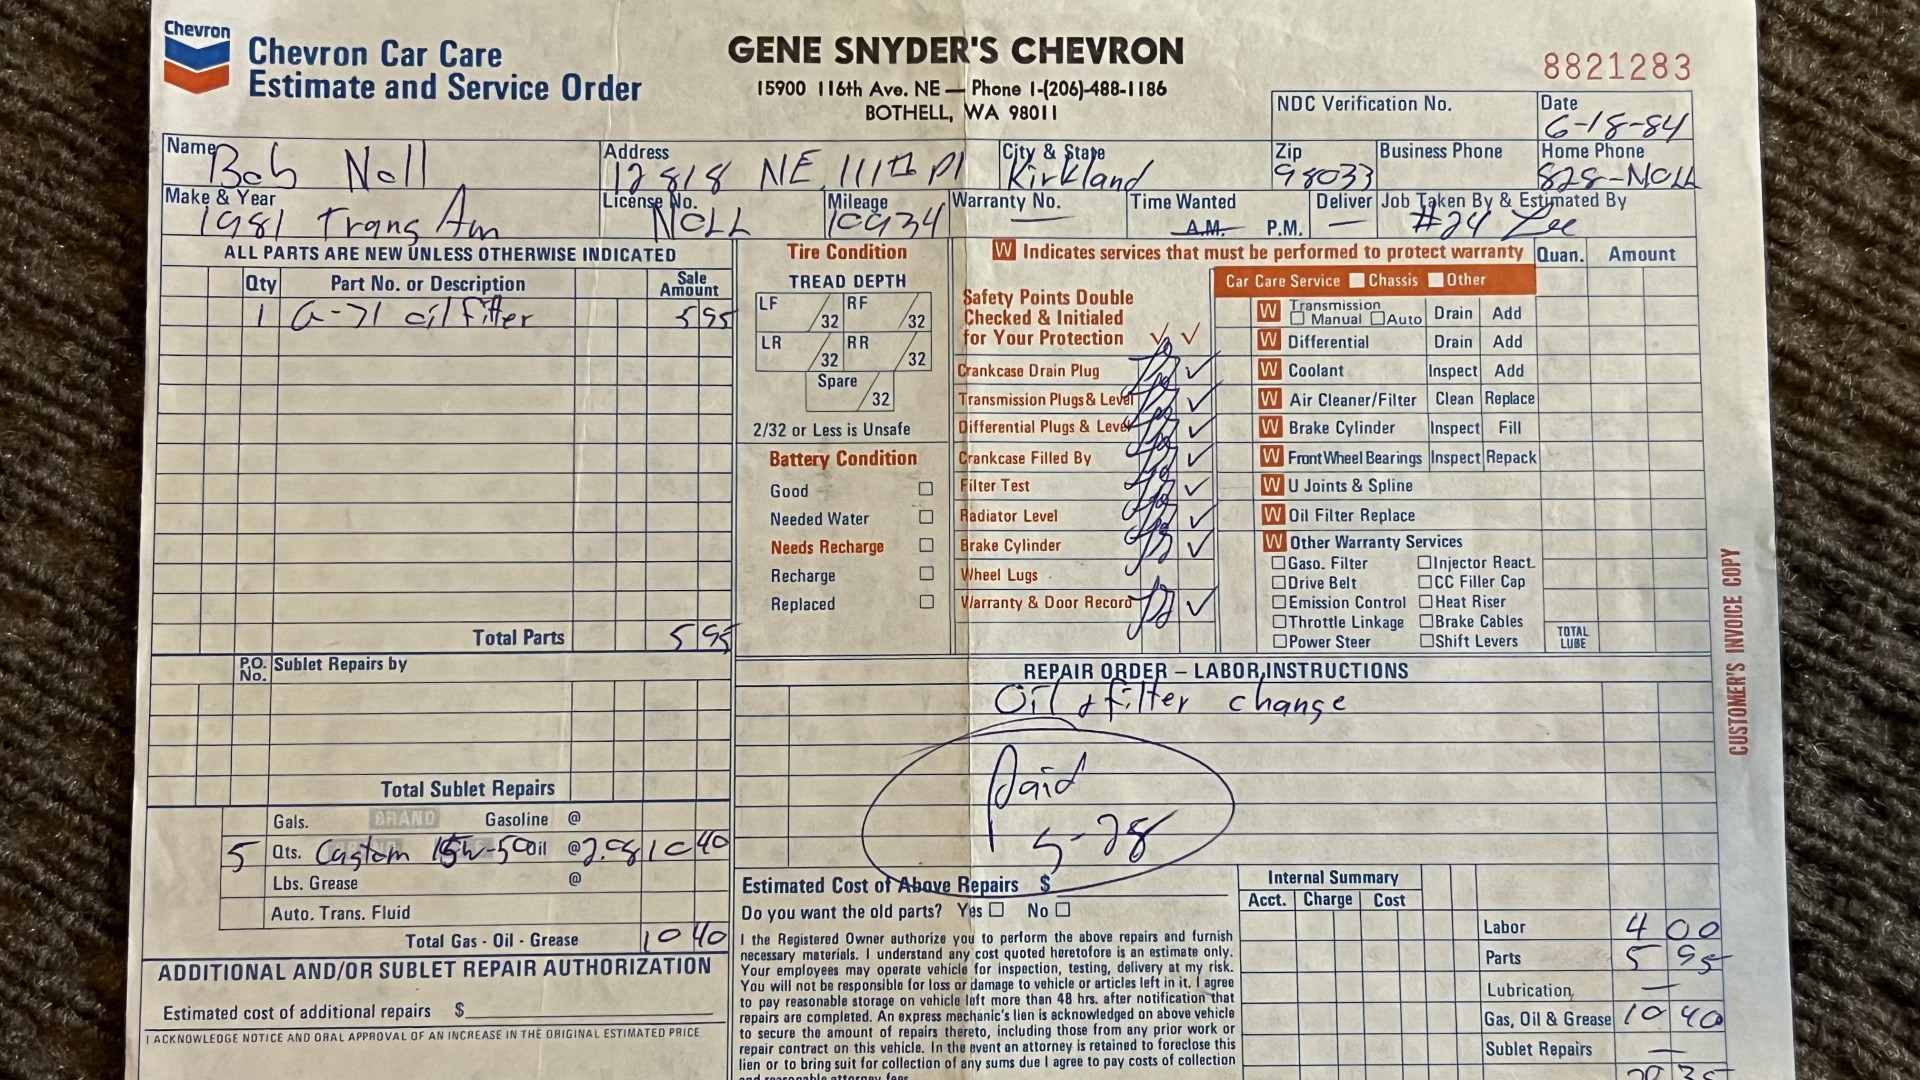 Chevron
Chevron Car Care
Estimate and Service Order
GENE SNYDER'S CHEVRON
15900 116th Ave. NE — Phone 1-(206)-488-1186
BOTHELL, WA 98011
8821283
NDC Verification No.
Date 6-18-84
Name Bob Noll
Address 12818 NE 111th Pl
City & State Kirkland
Zip 98033
Business Phone
Home Phone 828-NOLL
Make & Year 1981 Trans Am
License No. NOLL
Mileage 10934
Warranty No. —
Time Wanted A.M. P.M.
Deliver —
Job Taken By & Estimated By #24 Lee
ALL PARTS ARE NEW UNLESS OTHERWISE INDICATED
Qty Part No. or Description Sale Amount
1 G-71 oil filter 5 95
Total Parts 5 95
P.O. No. Sublet Repairs by
Total Sublet Repairs
Gals. BRAND Gasoline @
5 Qts. Custom 15w-50 Oil @ 2.08 10 40
Lbs. Grease @
Auto. Trans. Fluid
Total Gas - Oil - Grease 10 40
ADDITIONAL AND/OR SUBLET REPAIR AUTHORIZATION
Estimated cost of additional repairs $
I ACKNOWLEDGE NOTICE AND ORAL APPROVAL OF AN INCREASE IN THE ORIGINAL ESTIMATED PRICE
Tire Condition
TREAD DEPTH
LF /32 RF /32
LR /32 RR /32
Spare /32
2/32 or Less is Unsafe
Battery Condition
Good
Needed Water
Needs Recharge
Recharge
Replaced
W Indicates services that must be performed to protect warranty
Safety Points Double
Checked & Initialed
for Your Protection
Crankcase Drain Plug
Transmission Plugs & Level
Differential Plugs & Level
Crankcase Filled By
Filter Test
Radiator Level
Brake Cylinder
Wheel Lugs
Warranty & Door Record
Quan. Amount
Car Care Service Chassis Other
W Transmission Manual Auto Drain Add
W Differential Drain Add
W Coolant Inspect Add
W Air Cleaner/Filter Clean Replace
W Brake Cylinder Inspect Fill
W Front Wheel Bearings Inspect Repack
W U Joints & Spline
W Oil Filter Replace
W Other Warranty Services
Gaso. Filter Injector React.
Drive Belt CC Filler Cap
Emission Control Heat Riser
Throttle Linkage Brake Cables
Power Steer Shift Levers
TOTAL LUBE
CUSTOMER'S INVOICE COPY
REPAIR ORDER – LABOR INSTRUCTIONS
Oil & filter change
Paid
5-28
Estimated Cost of Above Repairs $
Do you want the old parts? Yes No
I the Registered Owner authorize you to perform the above repairs and furnish
necessary materials. I understand any cost quoted heretofore is an estimate only.
Your employees may operate vehicle for inspection, testing, delivery at my risk.
You will not be responsible for loss or damage to vehicle or articles left in it. I agree
to pay reasonable storage on vehicle left more than 48 hrs. after notification that
repairs are completed. An express mechanic's lien is acknowledged on above vehicle
to secure the amount of repairs thereto, including those from any prior work or
repair contract on this vehicle. In the event an attorney is retained to foreclose this
lien or to bring suit for collection of any sums due I agree to pay costs of collection
and reasonable attorney fees.
Internal Summary
Acct. Charge Cost
Labor 4 00
Parts 5 95
Lubrication —
Gas, Oil & Grease 10 40
Sublet Repairs —
20 35